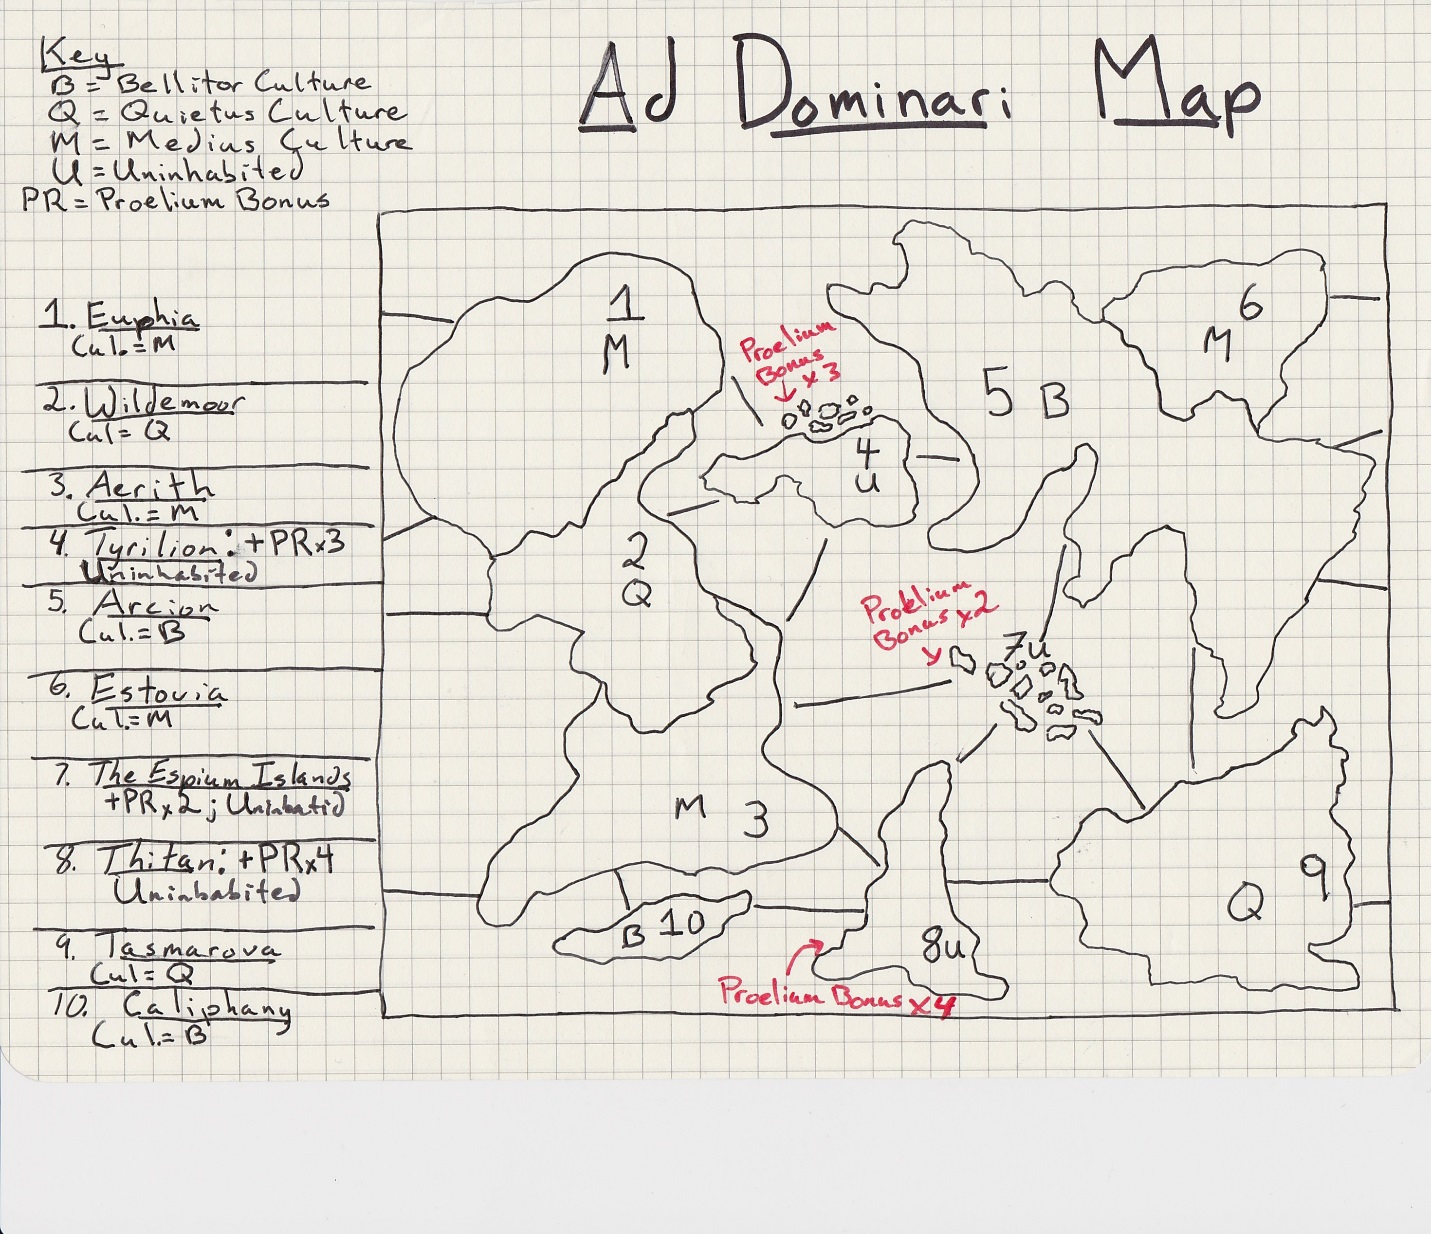 Ad Dominari Map
Key
B = Bellitor Culture
Q = Quietus Culture
M = Medius Culture
U = Uninhabited
PR = Proelium Bonus
1. Euphia
Cul. = M
2. Wildemoor
Cul = Q
3. Aerith
Cul. = M
4. Tyrilion: +PRx3
Uninhabited
5. Arcion
Cul. = B
6. Estovia
Cul. = M
7. The Espium Islands
+PRx2; Uninbatid
8. Thitan: +PRx4
Uninhabited
9. Tasmarova
Cul = Q
10. Caliphany
Cul. = B
1
M
Proelium
Bonus
x3
6
M
5 B
4
U
2
Q
Proelium
Bonus x2
7u
M 3
9
Q
B 10
8u
Proelium Bonus x4